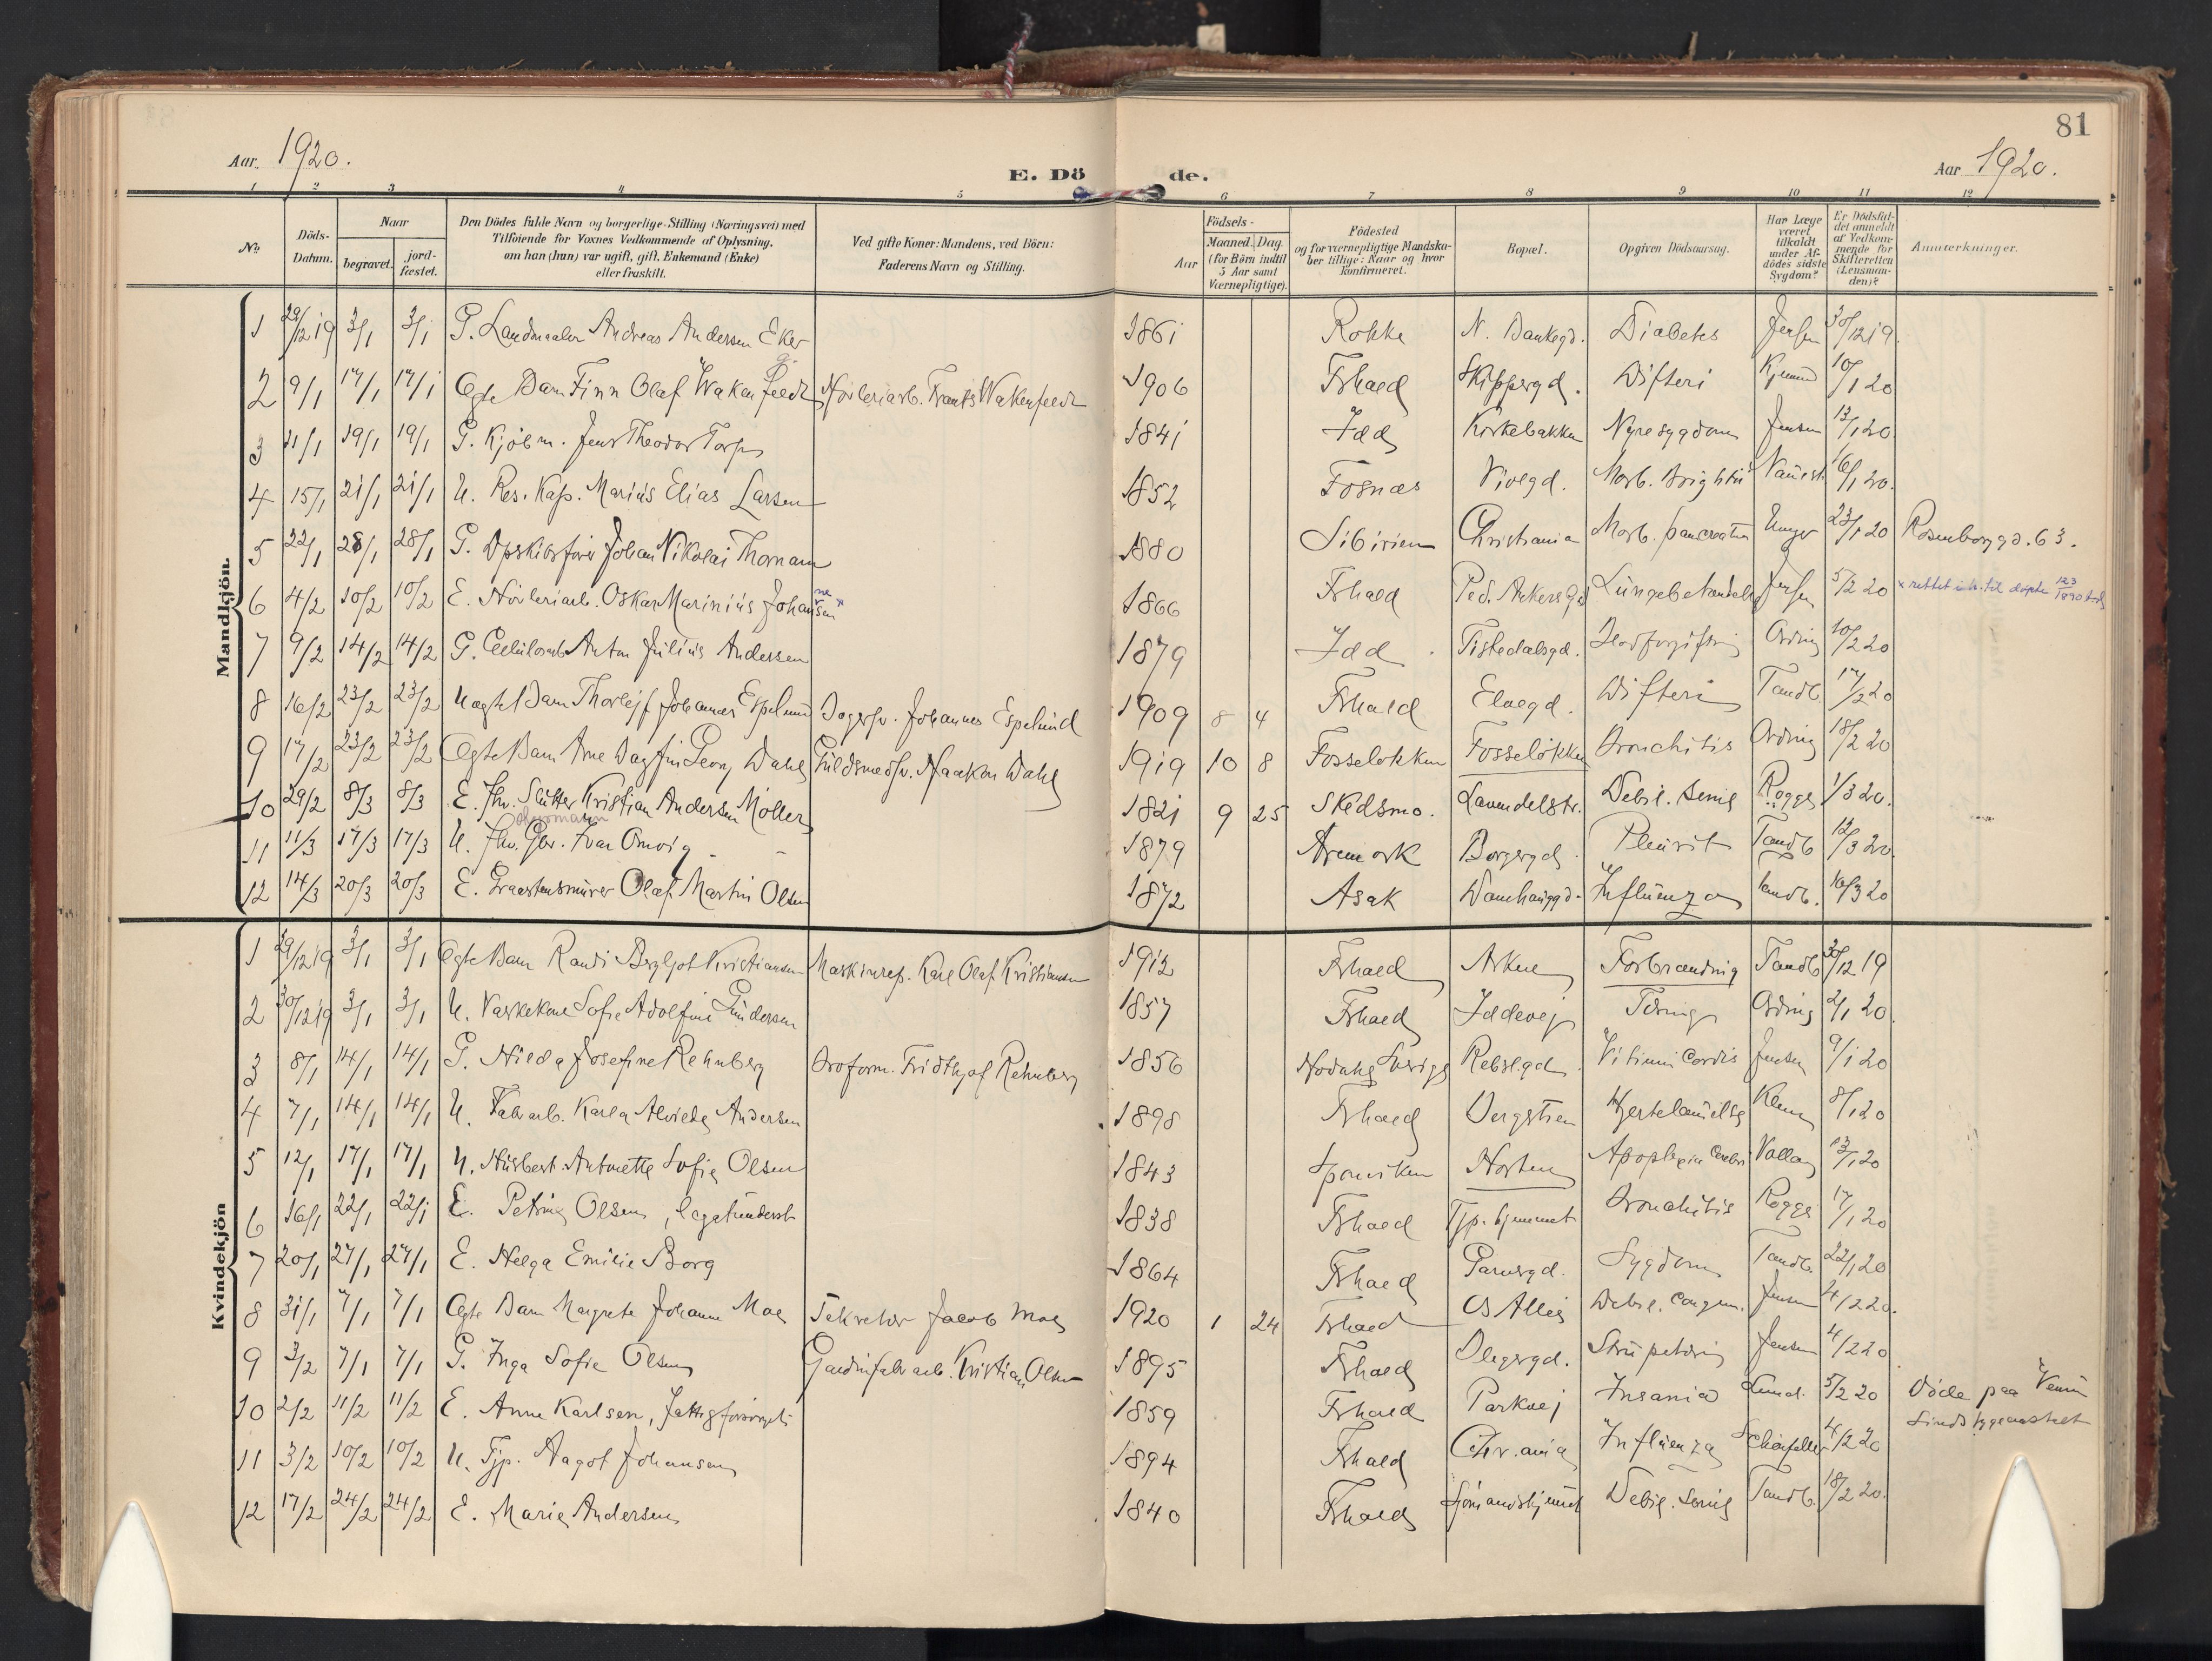 81
Aar. 1920.
E. Dö de.
Aar 1920.
1 2 3 4 5 6 7 8 9 10 11 12
No.
Döds-Datum.
Naar
begravet.
jord-fæstet.
Den Dödes fulde Navn og borgerlige Stilling (Næringsvei) med
Tilföiende for Voxnes Vedkommende af Oplysning,
om han (hun) var ugift, gift, Enkemand (Enke)
eller fraskilt.
Ved gifte Koner: Mandens, ved Börn:
Faderens Navn og Stilling.
Födsels-
Aar
Maaned. Dag.
(for Börn indtil
5 Aar samt
Værnepligtige).
Födested
og for værnepligtige Mandska-
ber tillige: Naar og hvor
Konfirmeret.
Bopæl.
Opgiven Dödsaarsag.
Har Læge
været
tilkaldt
under Af-
dödes sidste
Sygdom?
Er Dödsfal-
det anmeldt
af Vedkom-
mende for
Skifteretten
(Lensman-
den)?
Anmærkninger.
Mandkjön.
1 29/12 19 3/1 3/1 G. Landmaaler Andreas Andersen Eker 1861 Rokke N. Bankegd. Diabetes Jensen 30/12 19.
2 9/1 17/1 17/1 Ægte Barn Finn Olaf Wakenfeldt Hövleriarb. Frants Wakenfeldt 1906 Frhald Skippergd. Difteri 10/1 20
3 11/1 19/1 19/1 G. Kjöbm. Jens Theodor Torp 1841 Idd Kirkebakken Nyresygdom Jensen 13/1 20.
4 15/1 21/1 21/1 U. Res. Kap. Marius Elias Larsen 1852 Fosnæs Violgd. Morb. Brightii 16/1 20.
5 22/1 28/1 28/1 G. Johan Nikolai Thornam 1880 Sibirien Christiania Morb. pancreatis Unger 23/1 20 Rosenborggd. 63.
6 4/2 10/2 10/2 E. Hövleriarb. Oskar Marinius Johansen 1866 Frhald Ped. Ankers Gd Lungebetændelse Jensen 5/2 20 x rettet
7 9/2 14/2 14/2 G. Anton Julius Andersen 1879 Idd Tistedalsgd. Blodforgiftning Ording 10/2 20
8 16/2 23/2 23/2 Uægte Barn Thorleif Johannes Espelund Bagersv. Johannes Espelund 1909 8 4 Frhald Elvegd. Difteri Tandb. 17/2 20
9 17/2 23/2 23/2 Ægte Barn Arne Dagfin Georg Dahl Guldsmedsv. Haakon Dahl 1919 10 8 Fosseløkken Fosseløkken Bronchitis Ording 18/2 20
10 29/2 8/3 8/3 E. Fhv. Slutter Kristian Andersen Möller 1821 9 25 Skedsmo. Lavendelstr. Debil. senil Rogge 1/3 20.
11 11/3 17/3 17/3 U. Fhv. Gbr. Ivar Omvig 1879 Aremark Borgergd. Pleurit Tandb 12/3 20.
12 14/3 20/3 20/3 E. Graastensmurer Olaf Martin Olsen 1872 Asak Damhauggd. Influenza Tandb. 16/3 20
Kvindekjön
1 29/12 19 3/1 3/1 Ægte Barn Randi Bergljot Kristiansen Maskinrep. Karl Olaf Kristiansen 1912 Frhald Forbrænding Tandb 30/12 19
2 30/12 19 3/1 3/1 U. Vaskekone Sofie Adolfine Gundersen 1857 Frhald Iddevej Tæring Ording 2/1 20.
3 8/1 14/1 14/1 G. Hilda Josefine Rehnberg Broform. Fridthjof Rehnberg 1856 Sverige Rebslgd. Vitium Cordis Jensen 9/1 20
4 7/1 14/1 14/1 U. Fabrarb. Karla Alvilde Andersen 1898 Frhald Hjertelammelse 8/1 20
5 12/1 17/1 17/1 U. Husbest. Antonette Sofie Olsen 1843 Sponviken Horten Apoplexia Cerebri 13/1 20
6 16/1 22/1 22/1 E. Petrine Olsen, legatunderst 1838 Frhald Tjp. hjemmet Bronchitis Rogge 17/1 20
7 20/1 27/1 27/1 E. Helga Emilie Borg 1864 Frhald Garvergd. Sygdom Tandb. 22/1 20
8 31/1 7/1 7/1 Ægte Barn Margrete Johanne Moe Sekretær Jacob Moe 1920 1 24 Frhald Os Allé Debil. congen. Jensen 4/2 20.
9 3/2 7/1 7/1 G. Inga Sofie Olsen Gardinfabrarb. Kristian Olsen 1895 Frhald Olegergd. Strupetæring Jensen 4/2 20.
10 2/2 11/2 11/2 E. Anne Karlsen, fattigforsörget 1859 Frhald Parkvej Insania Lund. 5/2 20 Döde paa
Sindssygeasylet
11 3/2 10/2 10/2 U. Tjp. Aagot Johansen 1894 Frhald Chr.ania Influenza 4/2 20
12 17/2 24/2 24/2 E. Marie Andersen 1840 Frhald Sjömandshjemmet Debil. senil Tandb. 18/2 20.